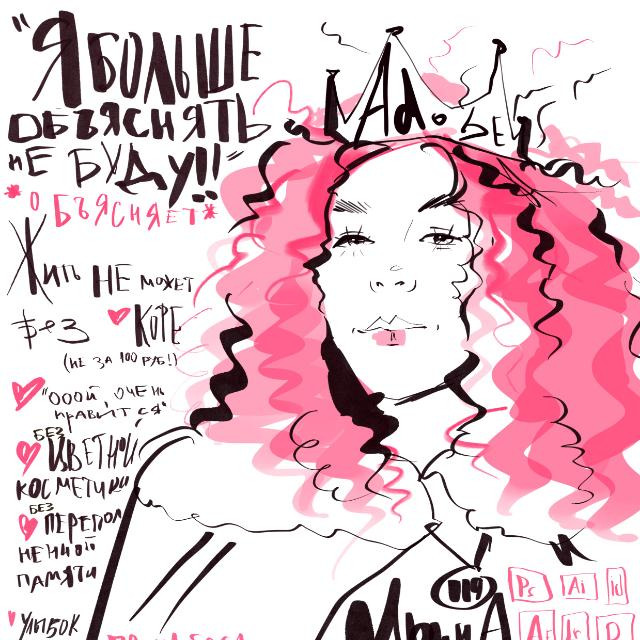 "Я БОЛЬШЕ
ОБЪЯСНЯТЬ
НЕ БУДУ!!"
*ОБЪЯСНЯЕТ*
Adobe
Жить НЕ может
Без КОФЕ
(НЕ ЗА 100 РУБ!)
"ОООЙ, ОЧЕНЬ
НРАВИТСЯ"
БЕЗ
ЦВЕТНОЙ
КОСМЕТИКИ
БЕЗ
ПЕРЕПОЛ
НЕННОЙ
ПАМЯТИ
УЛЫБОК
Ps Ai Id